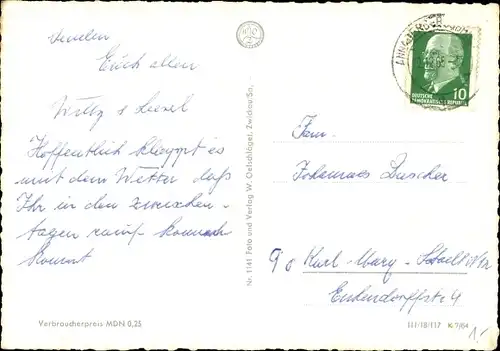 senden
Euch allen
Willy & Liesel
Hoffentlich klappt es
mit dem Wetter daß
Ihr in den zwischen-
tagen rauf kommen
kommt
Verbraucherpreis MDN 0,25
Nr. 1141 Foto und Verlag W. Oelschlägel, Zwickau/Sa.
10
DEUTSCHE
DEMOKRATISCHE REPUBLIK
Fam.
Johannes
90 Karl-Marx-Stadt
4
III/18/117 K 7/64
1/-